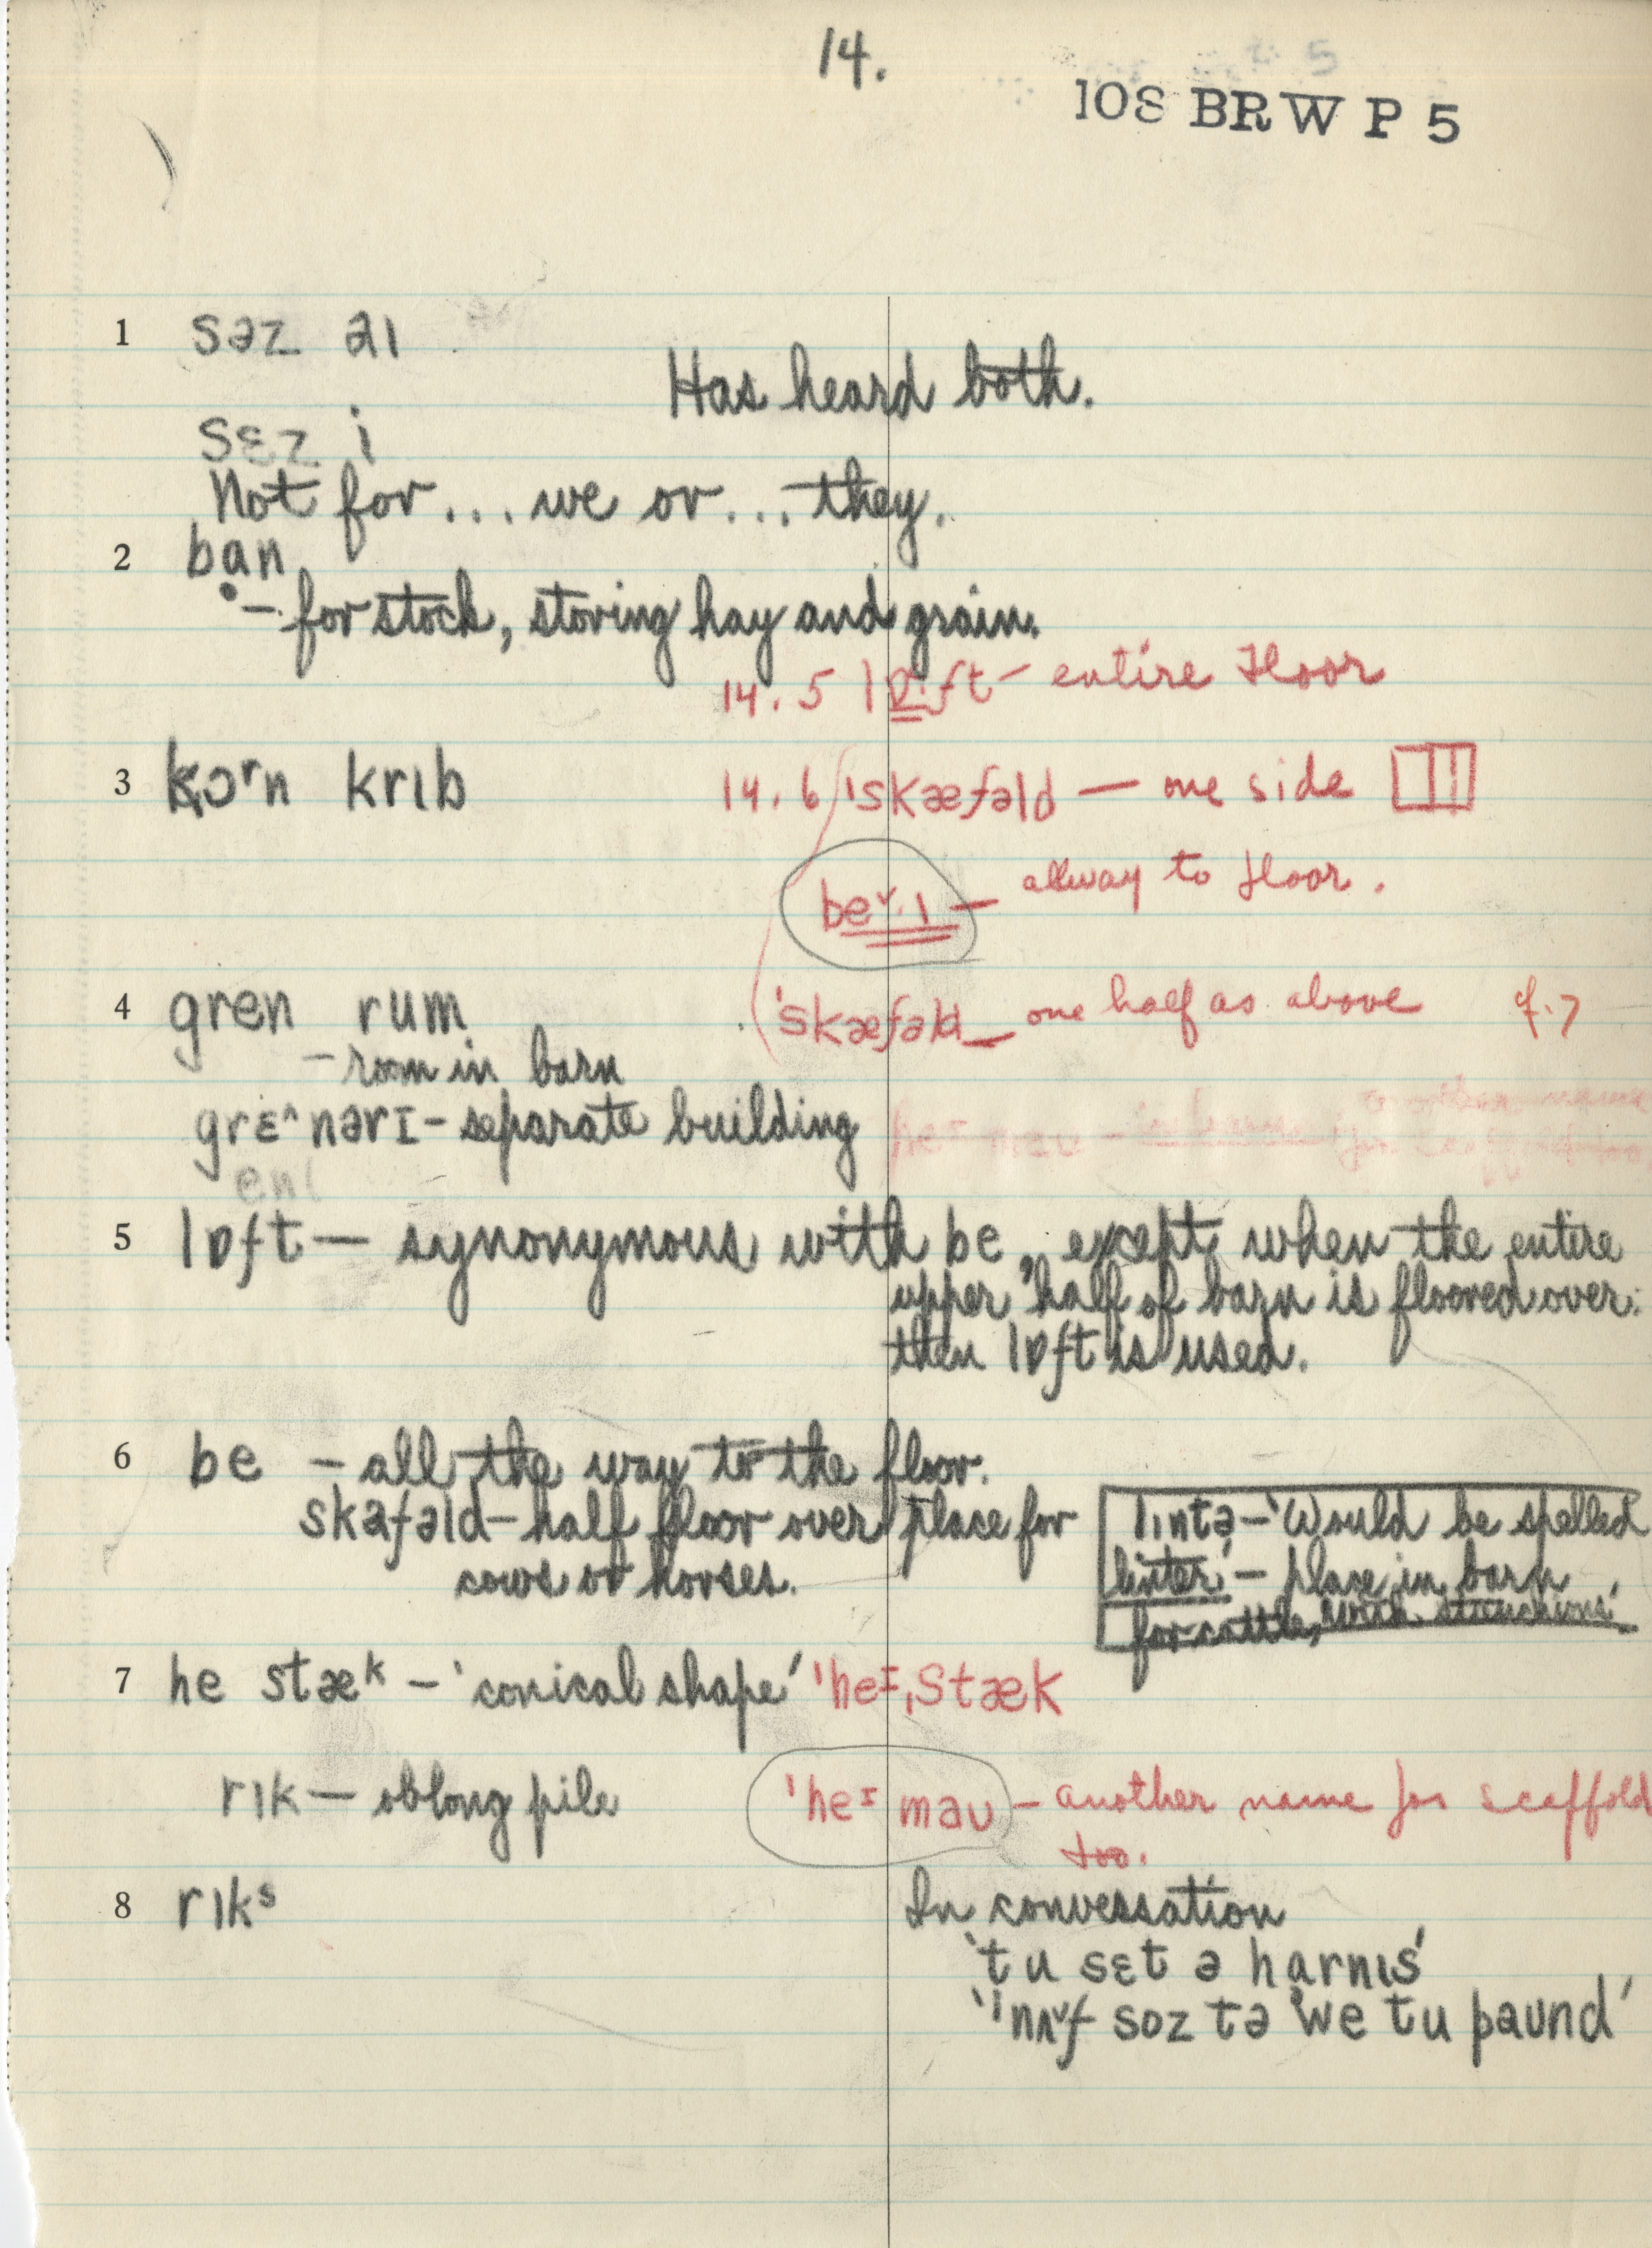 14.
108 BRW P 5
1 səz aɪ
Has heard both.
sɛz i
Not for... we or... they.
2 ban
– for stock, storing hay and grain.
14.5 lɒ·ft – entire floor
3 kɔʳn krɪb
14.6 'skæfəld – one side
beᵛ·ɪ – allway to floor.
4 gren rum
'skæfəld – one half as above
– room in barn
grɛ^nərɪ – separate building
5 lɒft – synonymous with be, except when the entire
upper half of barn is floored over.
then lɒft is used.
6 be – all the way to the floor.
skafəld – half floor over place for
cows or horses.
lɪntə – 'Would be spelled
linter' – place in barn
for cattle, with stanchions'
7 he stæᵏ – 'conical shape' 'heᶦˌstæk
rɪk – oblong pile
'heᶦ maʊ – another name for scaffold
too.
8 rɪkˢ
In conversation
'tu sɛt ə harnɪs'
'ˈnʌᵛf soz tə we tu paʊnd'